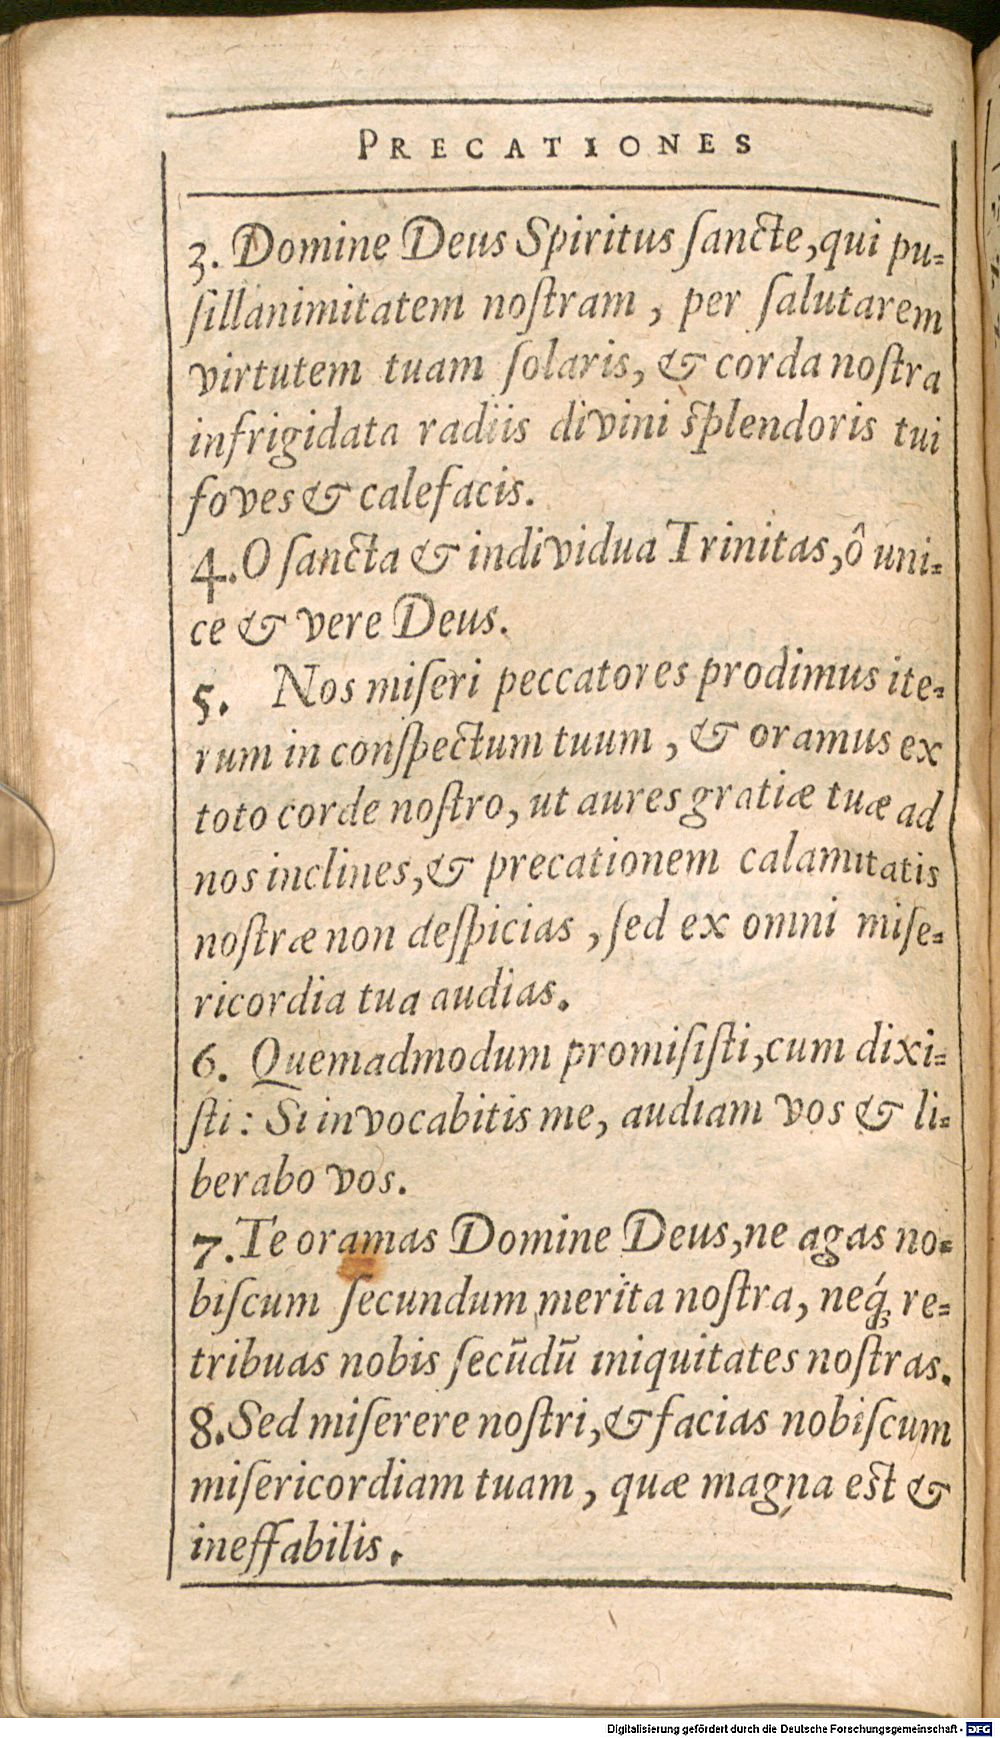 PRECATIONES
3. Domine Deus Spiritus ſancte, qui pu-
ſillanimitatem noſtram, per ſalutarem
virtutem tuam ſolaris, & corda noſtra
infrigidata radiis divini ſplendoris tui
foves & calefacis.
4. O ſancta & individua Trinitas, ô uni-
ce & vere Deus.
5. Nos miſeri peccatores prodimus ite-
rum in conſpectum tuum, & oramus ex
toto corde noſtro, ut aures gratiæ tuæ ad
nos inclines, & precationem calamitatis
noſtræ non deſpicias, ſed ex omni miſe-
ricordia tua audias.
6. Quemadmodum promiſiſti, cum dixi-
ſti: Si invocabitis me, audiam vos & li-
berabo vos.
7. Te oramas Domine Deus, ne agas no-
biſcum ſecundum merita noſtra, neq́; re-
tribuas nobis ſecūdū iniquitates noſtras.
8. Sed miſerere noſtri, & facias nobiſcum
miſericordiam tuam, quæ magna eſt &
ineffabilis.
Digitalisierung gefördert durch die Deutsche Forschungsgemeinschaft - DFG